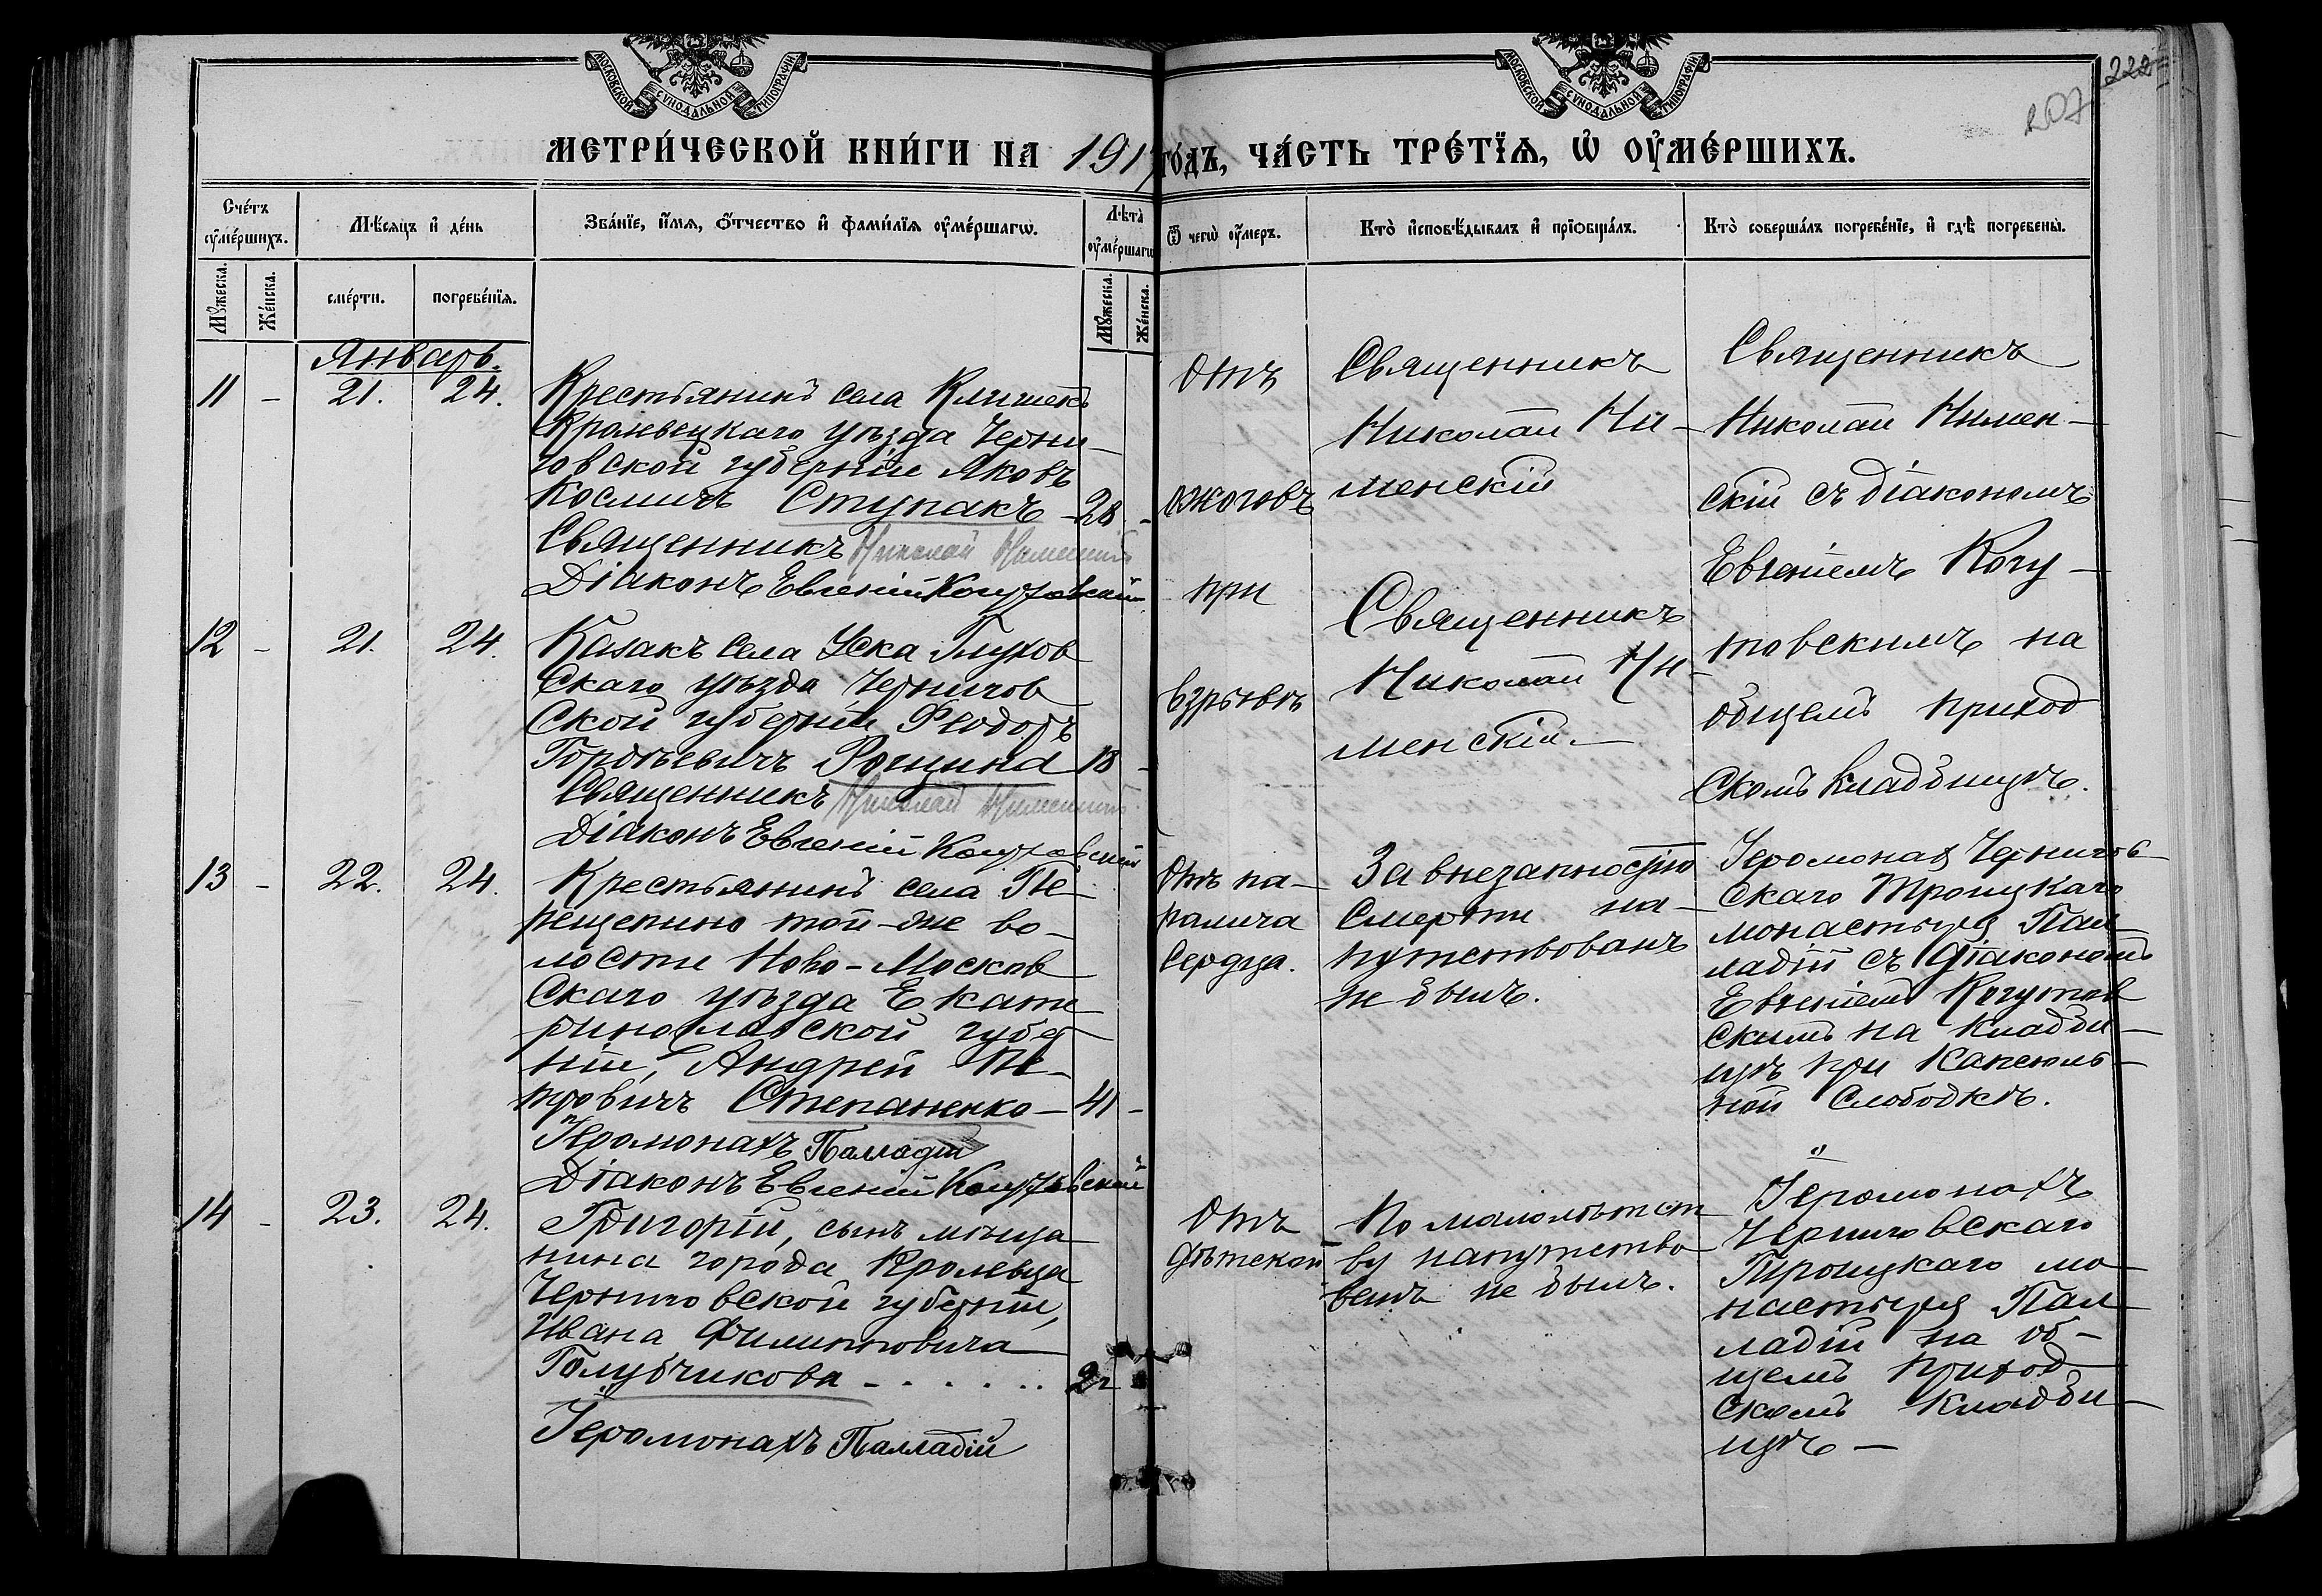 МОСКОВСКОЙ СѴНОДАЛЬНОЙ ТИПОГРАФІИ
МОСКОВСКОЙ СѴНОДАЛЬНОЙ ТИПОГРАФІИ
222
207
МЕТРИ́ЧЕСКОЙ КНИ́ГИ НА 1917 ГО́ДЪ, ЧА́СТЬ ТРЕ́ТЇѦ, Ѡ ОУ҆МЕ́РШИХЪ.
Сче́тъ оу҆ме́ршихъ.
Мꙋ́жеска.
Же́нска.
Мѣ́сѧцъ и҆ де́нь
сме́рти.
погребе́нїѧ.
Зва́нїе, и҆́мѧ, ѻ҆́тчество и҆ фами́лїѧ оу҆ме́ршагѡ.
Лѣ́та оу҆ме́ршагѡ
Мꙋ́жеска.
Же́нска.
Ѿ чегѡ̀ оу҆́меръ.
Кто̀ и҆сповѣ́дывалъ и҆ прїѡбща́лъ.
Кто̀ соверша́лъ погребе́нїе, и҆ гдѣ̀ погребены̀.
Январь.
11 - 21. 24.
Крестьянинъ села Клишекъ
Кролевецкаго уѣзда Черни-
говской губерніи Яковъ
Космичъ Ступакъ - 28 -
Священникъ Николай
Діаконъ Евгеній
Отъ
ожоговъ
при
взрывѣ
Священникъ
Николай Ни-
менскій
Священникъ
Николай Нимен-
скій съ діакономъ
Евгеніемъ Когу-
товскимъ на
общемъ приход
скомъ кладбищѣ.
12 - 21. 24.
Казакъ села Уска Глухов
скаго уѣзда Чернигов
ской губерніи Ѳеодоръ
Гордѣевичъ 18 -
Священникъ Николай
Діаконъ Евгеній
Священникъ
Николай Ни-
менскій. —
13 - 22. 24.
Крестьянинъ села Пе-
рещепино той-же во-
лости Ново-Москов
скаго уѣзда Екате
ринославской губер
ніи, Андрей Пе-
тровичъ Степаненко - 41 -
Іеромонахъ Палладій
Діаконъ Евгеній
Отъ па-
ралича
сердца.
За внезапностію
смерти на-
путствованъ
не былъ.
Іеромонахъ Чернигов-
скаго Троицкаго
монастыря Пал
ладій съ діакономъ
Евгеніемъ Когутов
скимъ на кладби-
щѣ при Капсюль-
ной Слободкѣ.
14 - 23. 24.
Григорій, сынъ мѣща
нина города Кролевца
Черниговской губерніи,
Ивана Филипповича
Голубчикова - . . . . . . 2г
Іеромонахъ Палладій
Отъ
дѣтской
По малолѣтст
ву напутство
ванъ не былъ.
"
Іеромонахъ
Черниговскаго
Троицкаго мо
настыря Пал
ладій на об-
щемъ приход
скомъ кладби
щѣ —